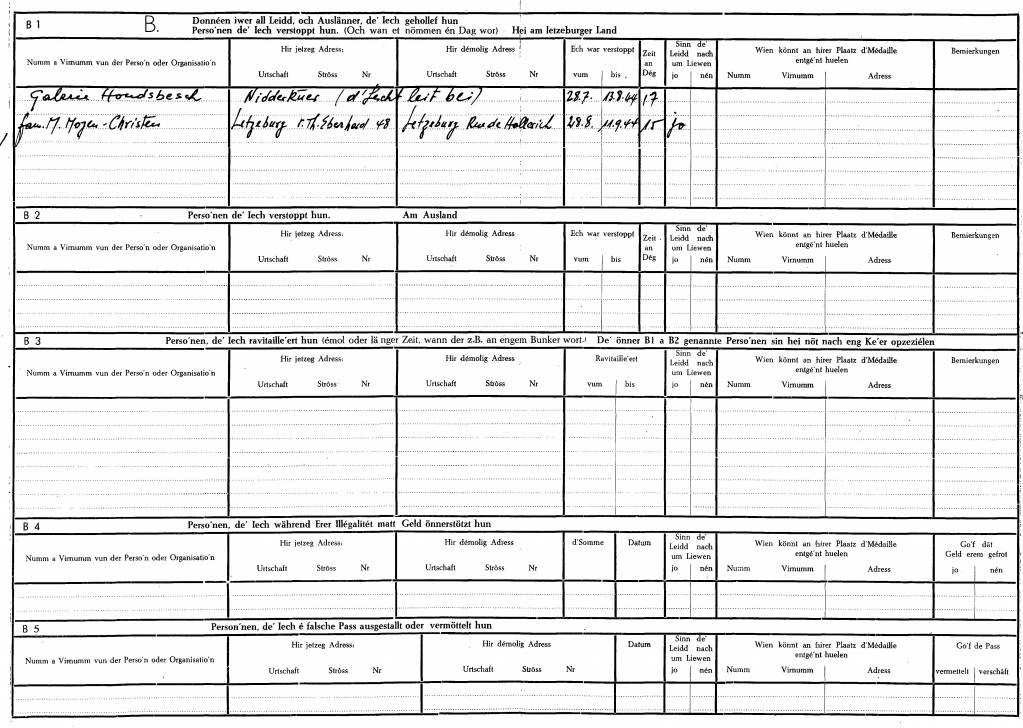 B 1 B. Donnéen iwer all Leidd, och Auslänner, de' Iech gehollef hun
Perso'nen de' Iech verstoppt hun. (Och wan et nömmen én Dag wor) Hei am letzeburger Land
Numm a Virnumm vun der Perso'n oder Organisatio'n
Hir jetzeg Adress:
Urtschaft Ströss Nr
Hir démolig Adress
Urtschaft Ströss Nr
Ech war verstoppt
vum bis
Zeit
an
Dég
Sinn de'
Leidd nach
um Liewen
jo nén
Wien könnt an hirer Plaatz d'Médaille
entgé'nt huelen
Numm Virnumm Adress
Bemierkungen
Galerie Hondsbesch Nidderkuer (d'Iecht leit bei) 28.7. 13.8.44 17
fam. M. Moyen-Christen Letzeburg r. Th. Eberhard 48 Letzeburg Rue de Hollerich 28.8. 11.9.44 15 jo
B 2 Perso'nen de' Iech verstoppt hun. Am Ausland
Numm a Virnumm vun der Perso'n oder Organisatio'n
Hir jetzeg Adress:
Urtschaft Ströss Nr
Hir démolig Adress
Urtschaft Ströss Nr
Ech war verstoppt
vum bis
Zeit
an
Dég
Sinn de'
Leidd nach
um Liewen
jo nén
Wien könnt an hirer Plaatz d'Médaille
entgé'nt huelen
Numm Virnumm Adress
Bemierkungen
B 3 Perso'nen, de' Iech ravitaille'ert hun (émol oder lä nger Zeit, wann der z.B. an engem Bunker wort.) De' önner B1 a B2 genannte Perso'nen sin hei nöt nach eng Ke'er opzeziélen
Numm a Virnumm vun der Perso'n oder Organisatio'n
Hir jetzeg Adress:
Urtschaft Ströss Nr
Hir démolig Adress
Urtschaft Ströss Nr
Ravitaille'ert
vum bis
Sinn de'
Leidd nach
um Liewen
jo nén
Wien könnt an hirer Plaatz d'Médaille
entgé'nt huelen
Numm Virnumm Adress
Bemierkungen
B 4 Perso'nen, de' Iech während Erer Illégalitét matt Geld önnerstötzt hun
Numm a Virnumm vun der Perso'n oder Organisatio'n
Hir jetzeg Adress:
Urtschaft Ströss Nr
Hir démolig Adress
Urtschaft Ströss Nr
d'Somme
Datum
Sinn de'
Leidd nach
um Liewen
jo nén
Wien könnt an hirer Plaatz d'Médaille
entgé'nt huelen
Numm Virnumm Adress
Go'f dát
Geld erem gefrot
jo nén
B 5 Person'nen, de' Iech é falsche Pass ausgestallt oder vermöttelt hun
Numm a Virnumm vun der Perso'n oder Organisatio'n
Hir jetzeg Adress:
Urtschaft Ströss Nr
Hir démolig Adress
Urtschaft Ströss Nr
Datum
Sinn de'
Leidd nach
um Liewen
jo nén
Wien könnt an hirer Plaatz d'Médaille
entgé'nt huelen
Numm Virnumm Adress
Go'f de Pass
vermettelt verschäft